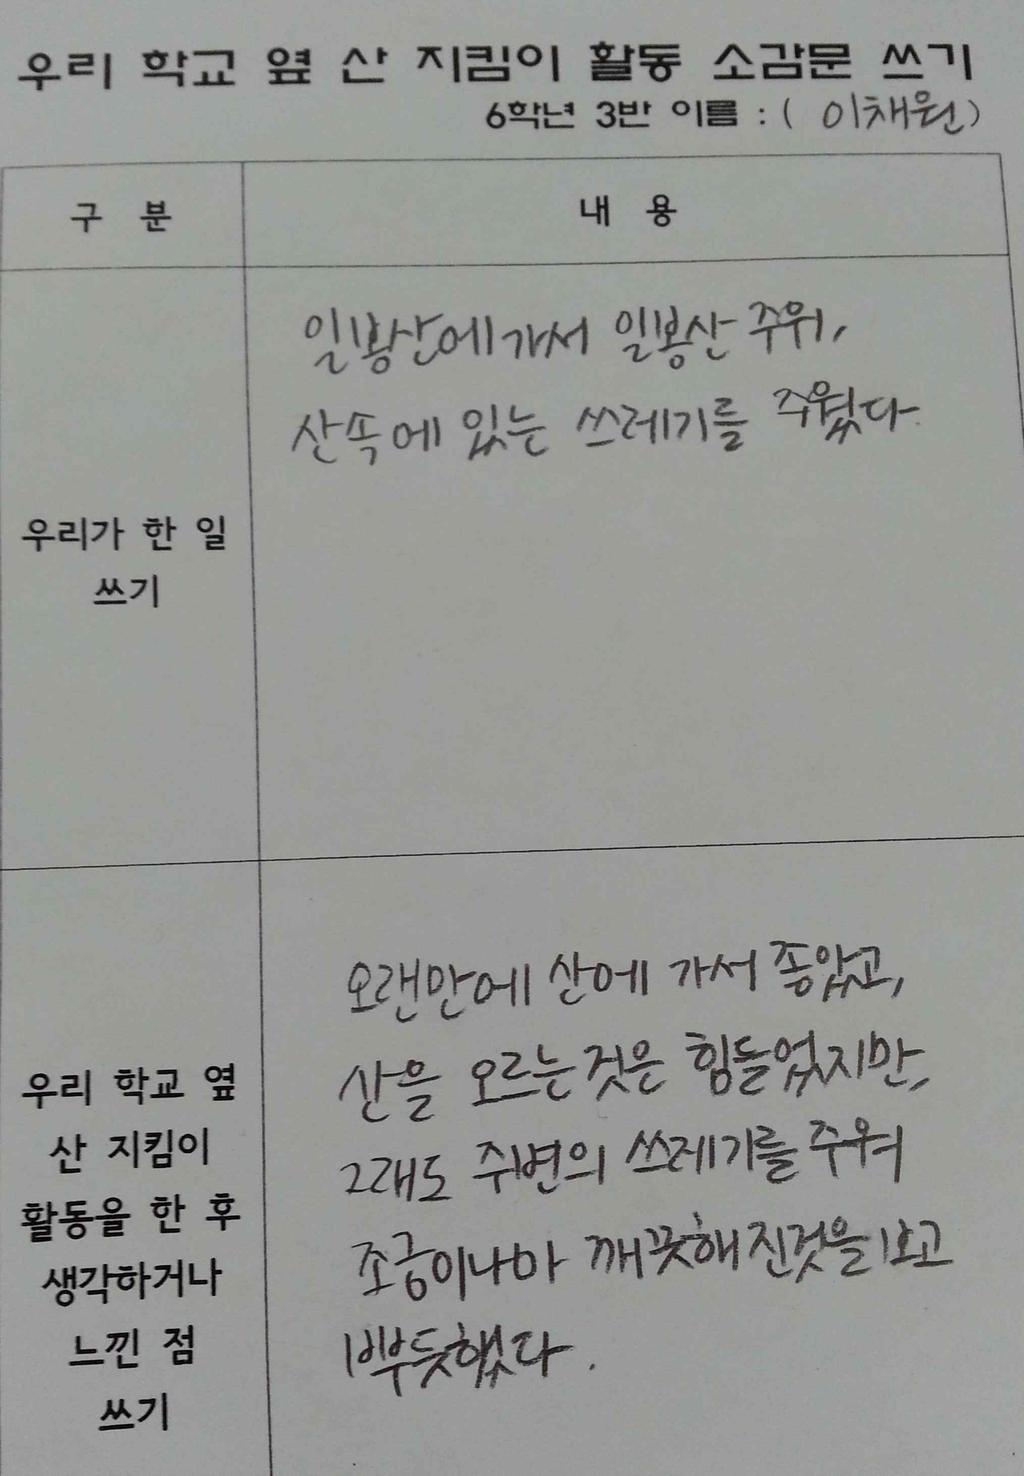 우리 학교 옆 산 지킴이 활동 소감문 쓰기
6학년 3반 이름 : ( 이채원)
구 분
내 용
우리가 한 일
쓰기
일봉산에가서 일봉산 주위,
산속에 있는 쓰레기를 주웠다.
우리 학교 옆
산 지킴이
활동을 한 후
생각하거나
느낀 점
쓰기
오랜만에 산에 가서 좋았고,
산을 오르는것은 힘들었지만,
그래도 주변의 쓰레기를 주워
조금이나마 깨끗해진것을보고
뿌듯했다.